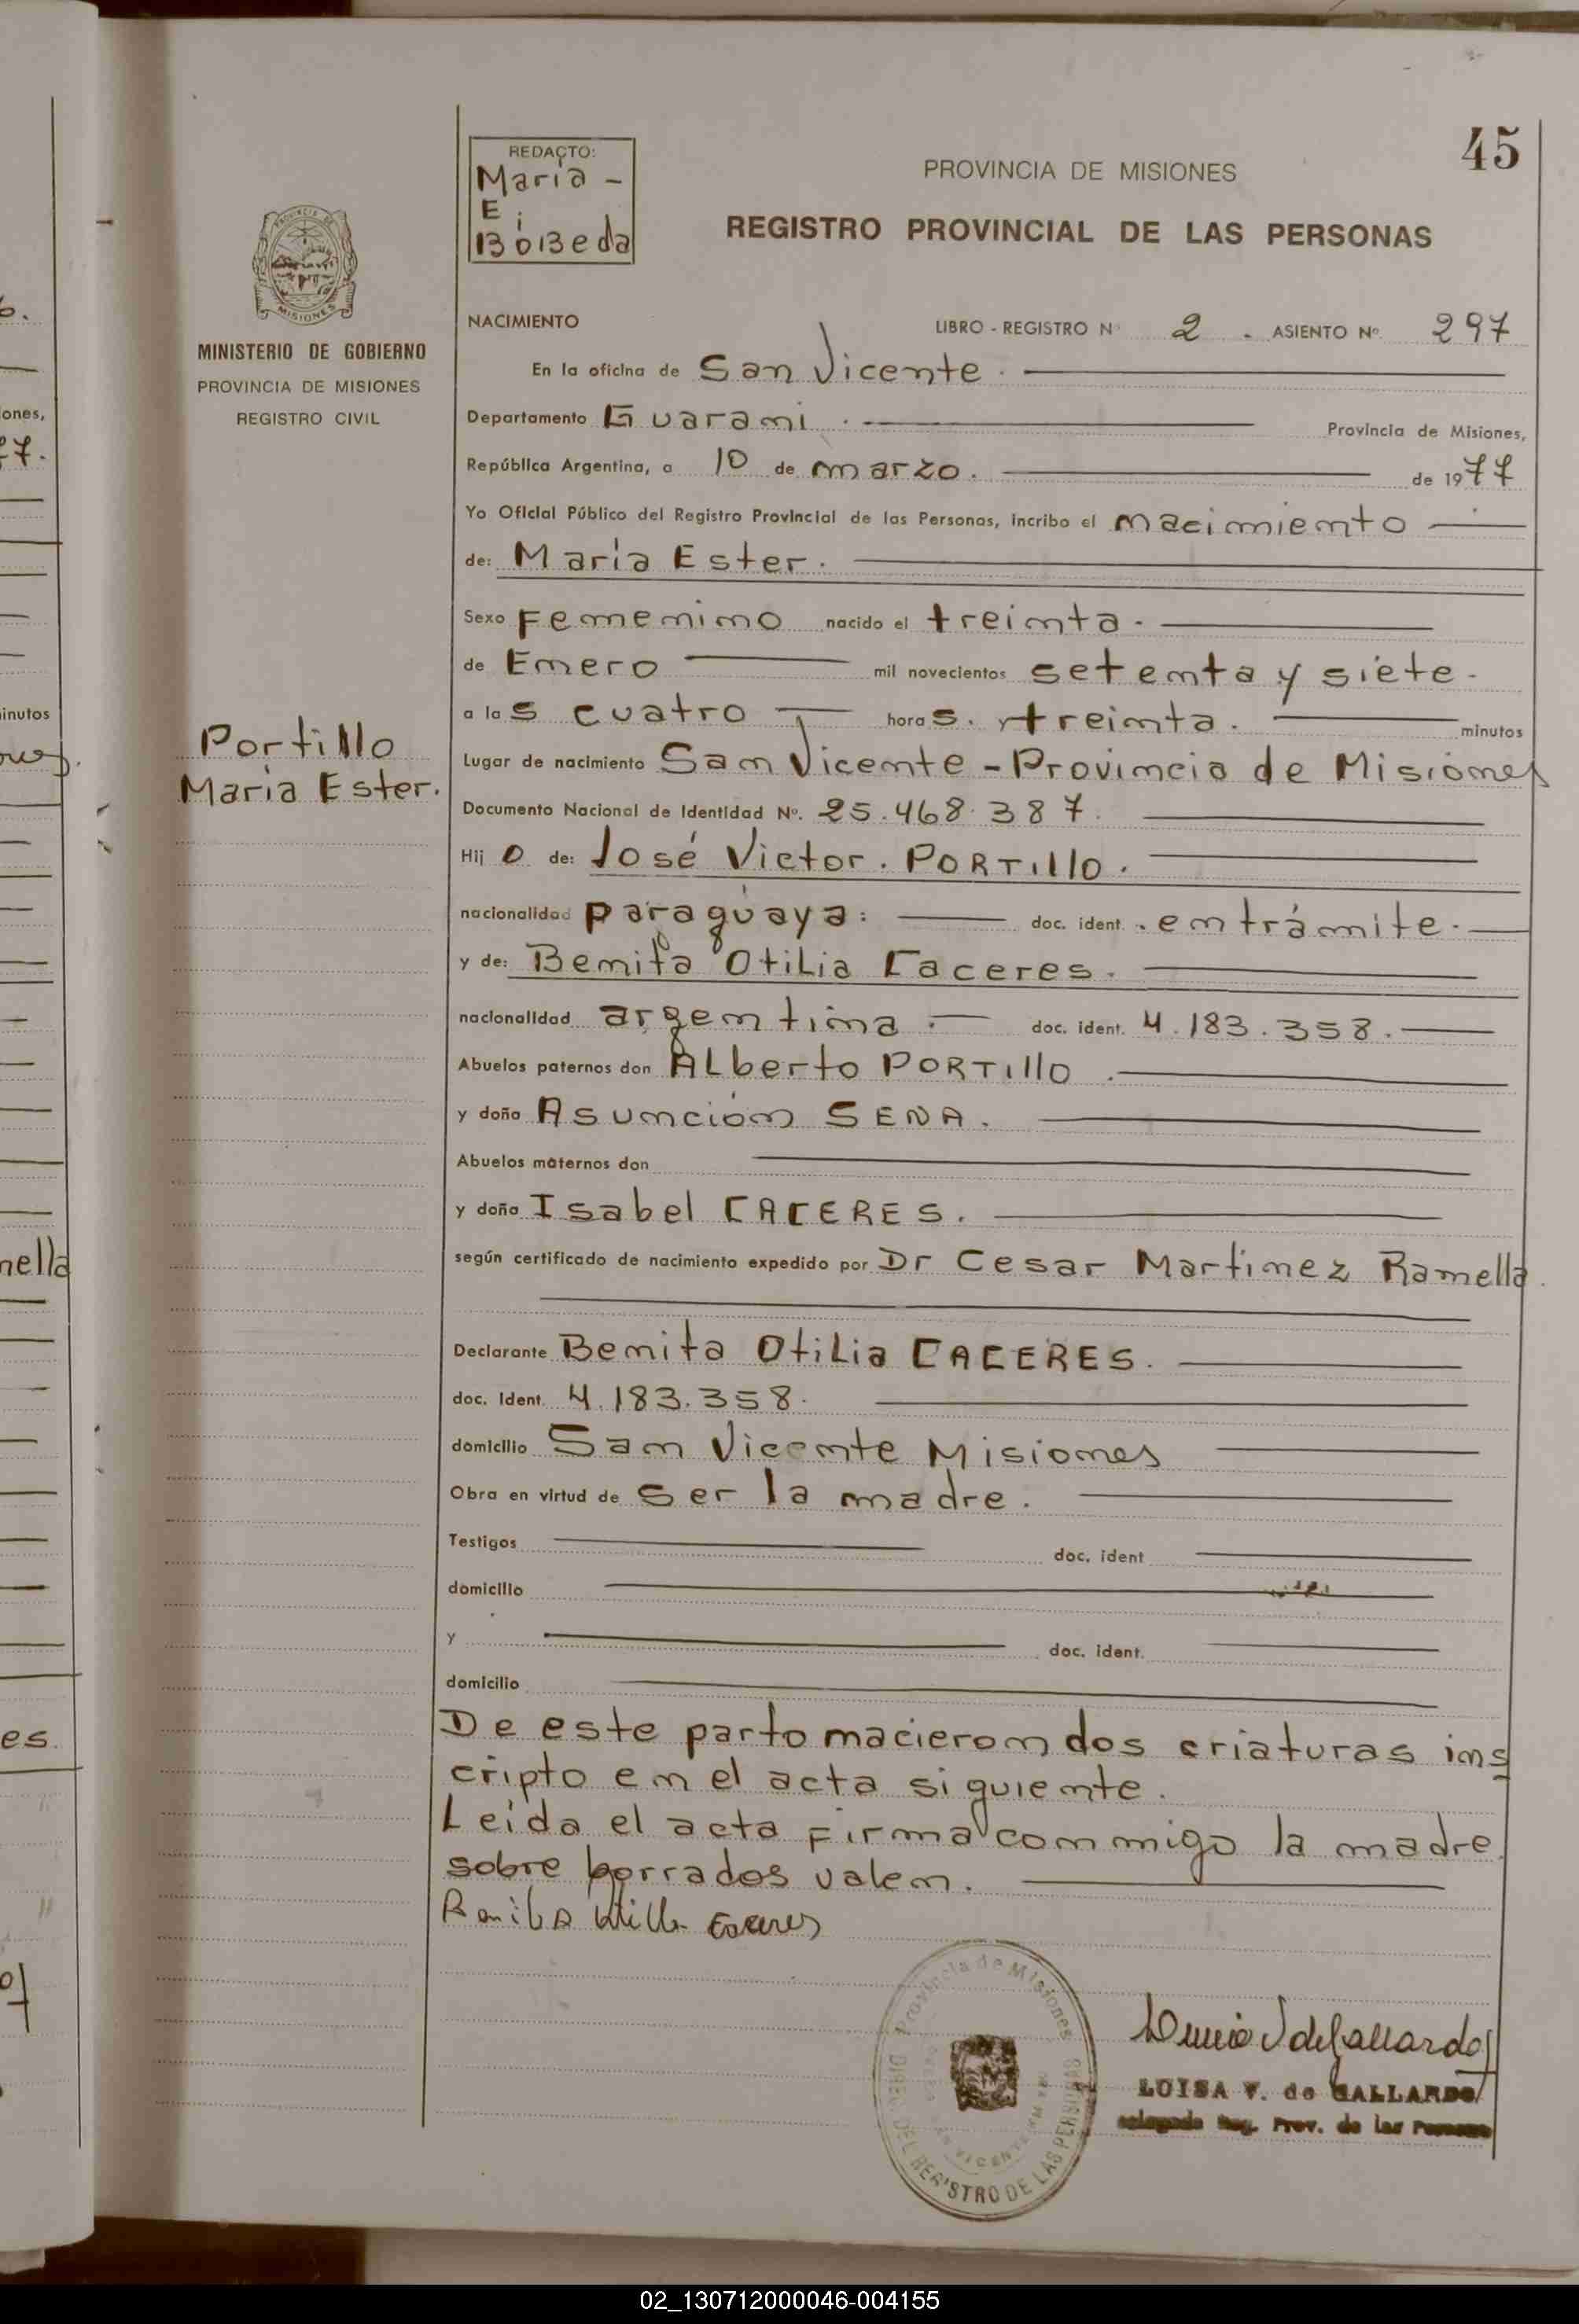 45
REDACTO:
María -
E.
BóBeda
PROVINCIA DE MISIONES
REGISTRO PROVINCIAL DE LAS PERSONAS
MISIONES
MINISTERIO DE GOBIERNO
PROVINCIA DE MISIONES
REGISTRO CIVIL
Portillo
María Ester.
NACIMIENTO LIBRO - REGISTRO Nº 2 - ASIENTO Nº 297
En la oficina de San Vicente.
Departamento Guarani. Provincia de Misiones,
República Argentina, a 10 de marzo. de 1977
Yo Oficial Público del Registro Provincial de las Personas, incribo el nacimiento
de: María Ester.
Sexo Femenino nacido el treinta.
de Enero mil novecientos setenta y siete.
a las cuatro horas. y treinta. minutos
Lugar de nacimiento San Vicente - Provincia de Misiones
Documento Nacional de Identidad Nº. 25.468.387.
Hij o de: José Victor. PORTIllO.
nacionalidad paraguaya: doc. ident. en trámite.
y de: Benita Otilia Caceres.
nacionalidad argentina. doc. ident. 4.183.358.
Abuelos paternos don Alberto PORTIllO.
y doña Asunción SENA.
Abuelos maternos don
y doña Isabel CACERES.
según certificado de nacimiento expedido por Dr Cesar Martinez Ramella.
Declarante Benita Otilia CACERES.
doc. ident. 4.183.358.
domicilio San Vicente Misiones
Obra en virtud de ser la madre.
Testigos doc. ident
domicilio
y doc. ident.
domicilio
De este parto nacieron dos criaturas ins
cripto en el acta siguiente.
Leída el acta firma conmigo la madre.
sobre borrados valen.
Provincia de Misiones
DEL REGISTRO DE LAS PERSONAS
LUISA V. de GALLARDO
Delegada Reg. Prov. de las Personas
02_130712000046-004155